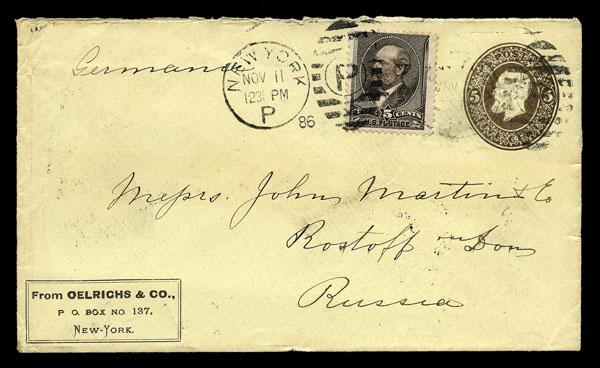 Germania
NEW YORK
NOV 11
1231 PM
P
86
P
5 CENTS
U.S. POSTAGE
5
5
Messrs. John Martin & Co
Rostoff on Don
Russia
From OELRICHS & CO.,
P O. BOX NO. 137,
NEW-YORK.